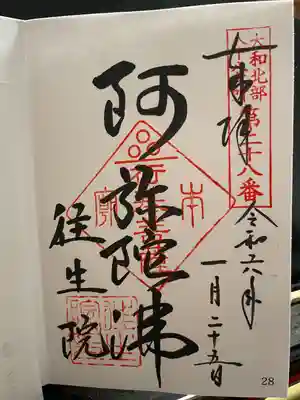 大和北部
第二十八番
奉拝
令和六年
一月二十五日
阿弥陀佛
往生院
28